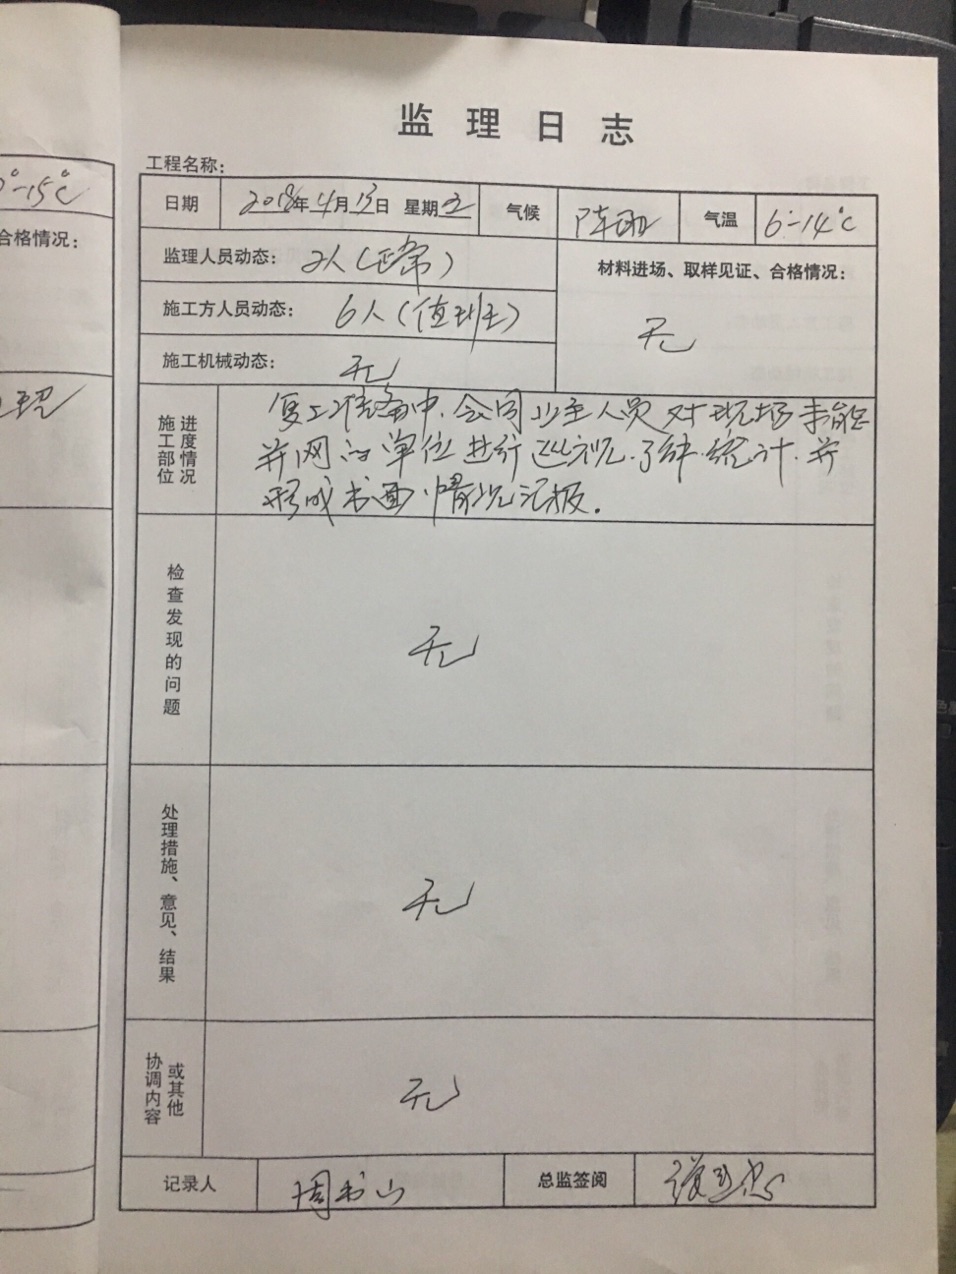 监理日志
工程名称：
日期 2018年4月13日 星期五 气候 阵雨 气温 6°-14℃
监理人员动态： 2人（正常） 材料进场、取样见证、合格情况：
施工方人员动态： 6人（值班） 无
施工机械动态： 无
施工部位进度情况 复工准备中，会同业主人员对现场未能
并网的单位进行巡视、了解、统计，并
形成书面情况汇报。
检查发现的问题 无
处理措施、意见、结果 无
协调内容或其他 无
记录人 周书山 总监签阅
-15℃
合格情况：